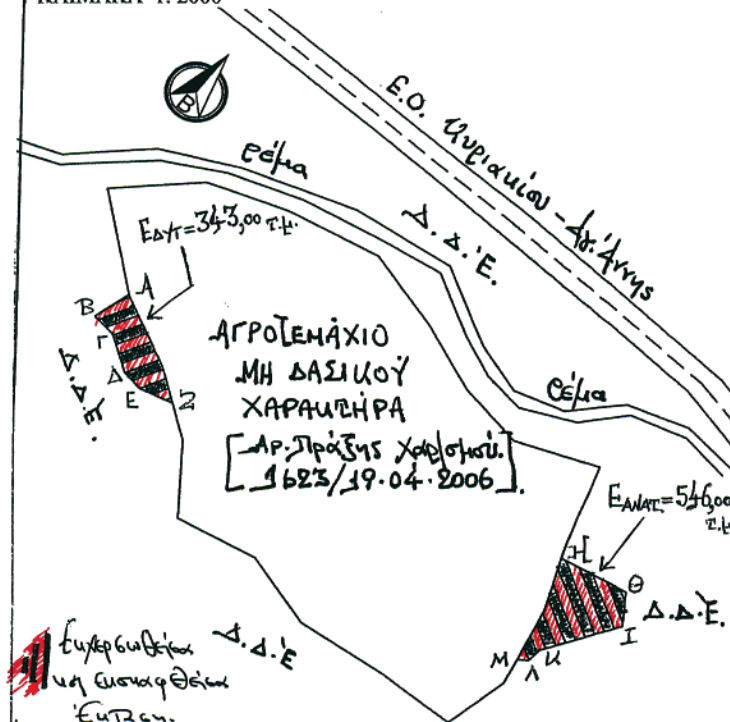 ΚΛΙΜΑΚΑ 1: 2000
Β
Ε.Ο. Κυριακίου - Αγ. Άννης
ρέμα
Δ.Δ.Ε.
ΕΔΥΤ=343,00 τ.μ.
Α
Β
Γ
Δ
Ε
Ζ
Δ.Δ.Ε.
ΑΓΡΟΤΕΜΑΧΙΟ
ΜΗ ΔΑΣΙΚΟΥ
ΧΑΡΑΚΤΗΡΑ
[Αρ. Πράξης Χαρ/σμού.
1623/19.04.2006].
ρέμα
ΕΑΝΑΤ.=546,00
τ.μ.
Η
Θ
Ι
Κ
Λ
Μ
Δ.Δ.Ε.
Δ.Δ.Ε
Εκχερσωθείσα
και εκσκαφθείσα
Έκταση.